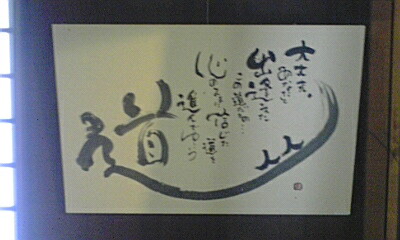 大丈夫。
あなたと
出逢えた
この
心のまま 信じた 道を
進んでゆこう
道